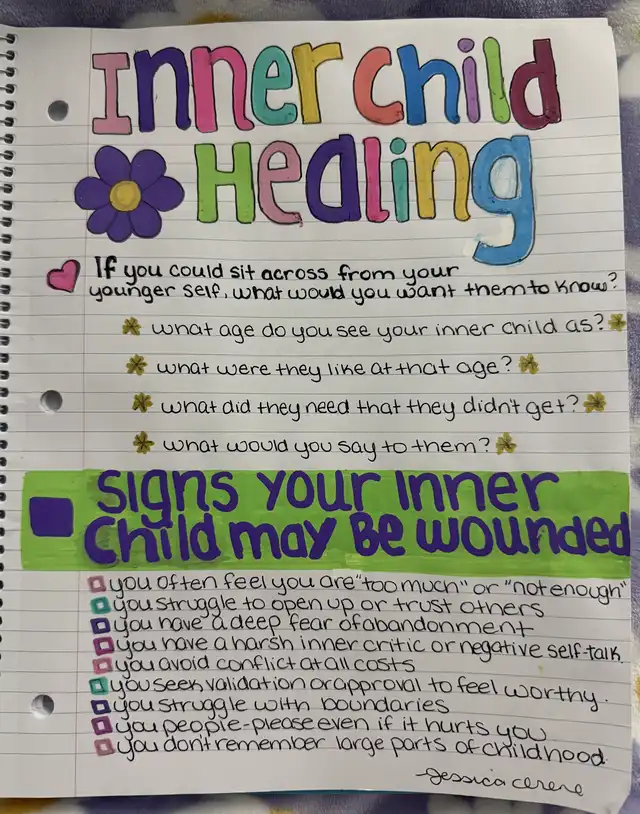 Inner child
Healing
If you could sit across from your
younger self, what would you want them to know?
what age do you see your inner child as?
what were they like at that age?
what did they need that they didn't get?
what would you say to them?
Signs your Inner
Child may Be wounded
you often feel you are "too much" or "not enough"
you struggle to open up or trust others
you have a deep fear of abandonment
you have a harsh inner critic or negative self-talk.
you avoid conflict at all costs
you seek validation or approval to feel worthy.
you struggle with boundaries
you people-please even if it hurts you
you don't remember large parts of childhood.
-Jessica Cerene